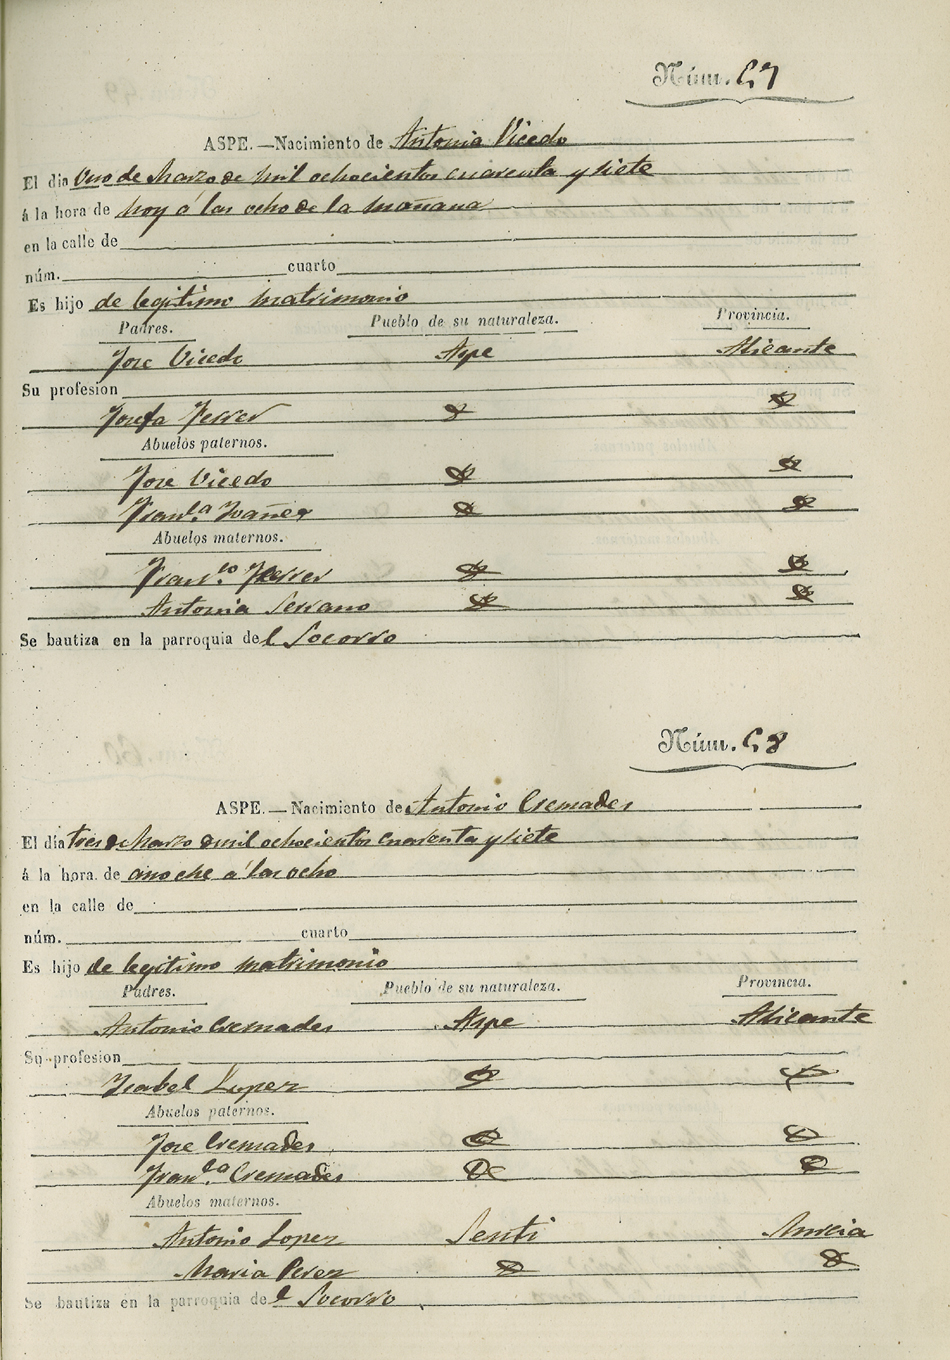 Núm. 57
ASPE.—Nacimiento de Antonia Vicedo
El dia Uno de Marzo de mil ochocientos cuarenta y siete
á la hora de hoy á las ocho de la mañana
en la calle de
núm. cuarto
Es hijo de legitimo matrimonio
Padres. Pueblo de su naturaleza. Provincia.
Jose Vicedo Aspe Alicante
Su profesion
Josefa Ferrer
Abuelos paternos.
Jose Vicedo
Franca. Ivañez
Abuelos maternos.
Franco. Ferrer
Antonia Serrano
Se bautiza en la parroquia del Socorro
Núm. 58
ASPE.—Nacimiento de Antonio Cremades
El dia tres de Marzo de mil ochocientos cuarenta y siete
á la hora de anoche a las ocho
en la calle de
núm. cuarto
Es hijo de legitimo matrimonio
Padres. Pueblo de su naturaleza. Provincia.
Antonio Cremades Aspe Alicante
Su profesion
Isabel Lopez
Abuelos paternos.
Jose Cremades
Franca. Cremades
Abuelos maternos.
Antonio Lopez Murcia
Maria Perez
Se bautiza en la parroquia del Socorro